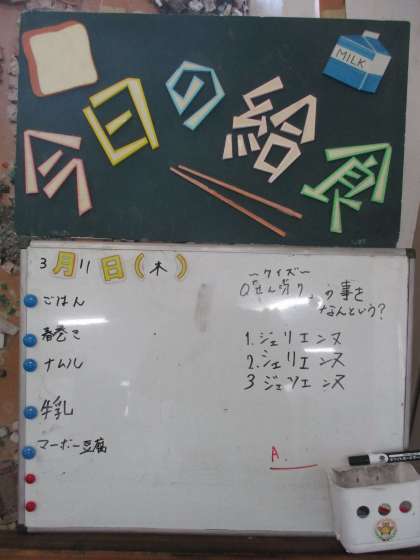 今日の給食
MILK
3月11日(木)
ごはん
春巻き
ナムル
牛乳
マーボー豆腐
ークイズー
の事を
なんという?
1.ジュリエンヌ
2.シェリエンヌ
3 ジェリエンヌ
A.